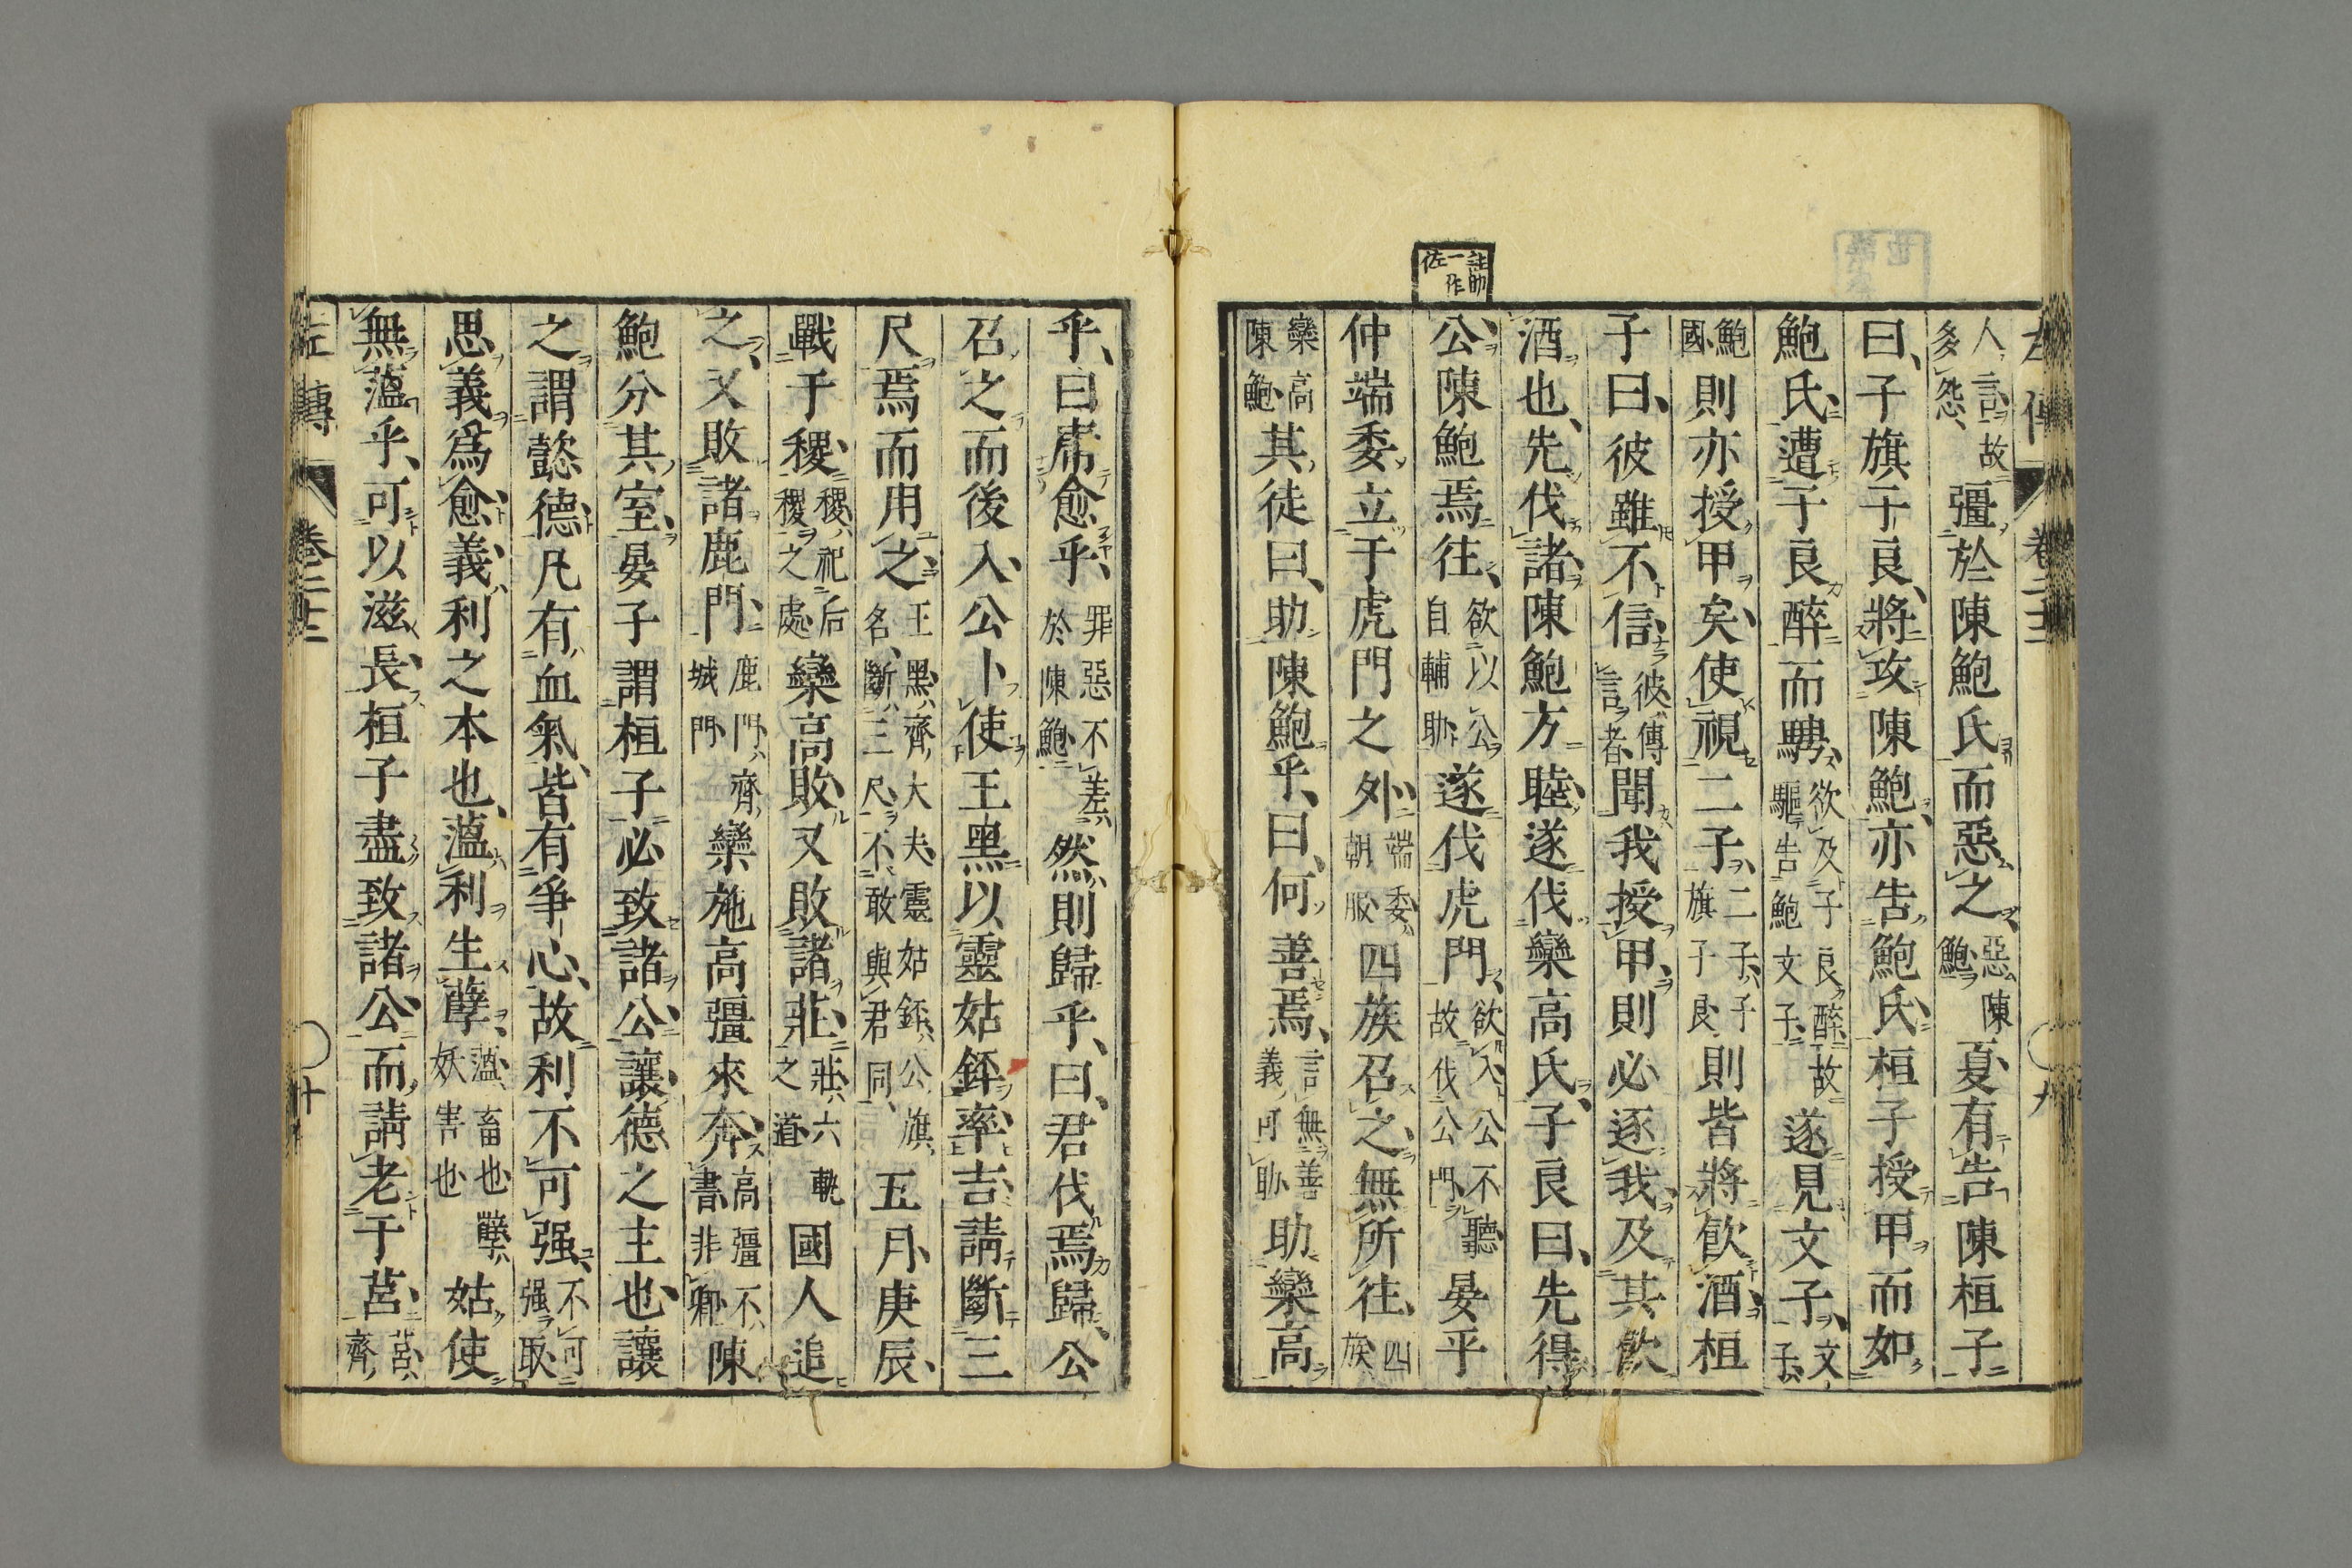 人言故多怨彊於陳鮑氏而惡之惡陳鮑夏有告陳桓子
曰子旗子良將攻陳鮑亦告鮑氏桓子授甲而如
鮑氏遭子良醉而騁欲及子良醉故驅告鮑文子遂見文子文子
鮑國則亦授甲矣使視二子二子子旗子良則皆將飮酒桓
子曰彼雖不信彼傳言者聞我授甲則必逐我及其飮
酒也先伐諸陳鮑方睦遂伐欒高氏子良曰先得
公陳鮑焉往欲以公自輔助遂伐虎門欲入公不聽故伐公門晏平
註助一作佐
仲端委立于虎門之外端委朝服四族召之無所往四族
欒高陳鮑其徒曰助陳鮑乎曰何善焉言無善義可助助欒高
左傳 卷二十二 九
乎曰庸愈乎罪惡不差於陳鮑然則歸乎曰君伐焉歸公
召之而後入公卜使王黑以靈姑銔率吉請斷三
尺焉而用之王黑齊大夫靈姑銔公旗名斷三尺不敢與君同五月庚辰
戰于稷稷祀后稷之處欒高敗又敗諸莊莊六軌之道國人追
之又敗諸鹿門鹿門齊城門欒施高彊來奔高彊不書非卿陳
鮑分其室晏子謂桓子必致諸公讓德之主也讓
之謂懿德凡有血氣皆有爭心故利不可强不可强取
思義爲愈義利之本也薀利生孽薀畜也孽妖害也姑使
無薀乎可以滋長桓子盡致諸公而請老于莒莒齊
左傳 卷二十二 十